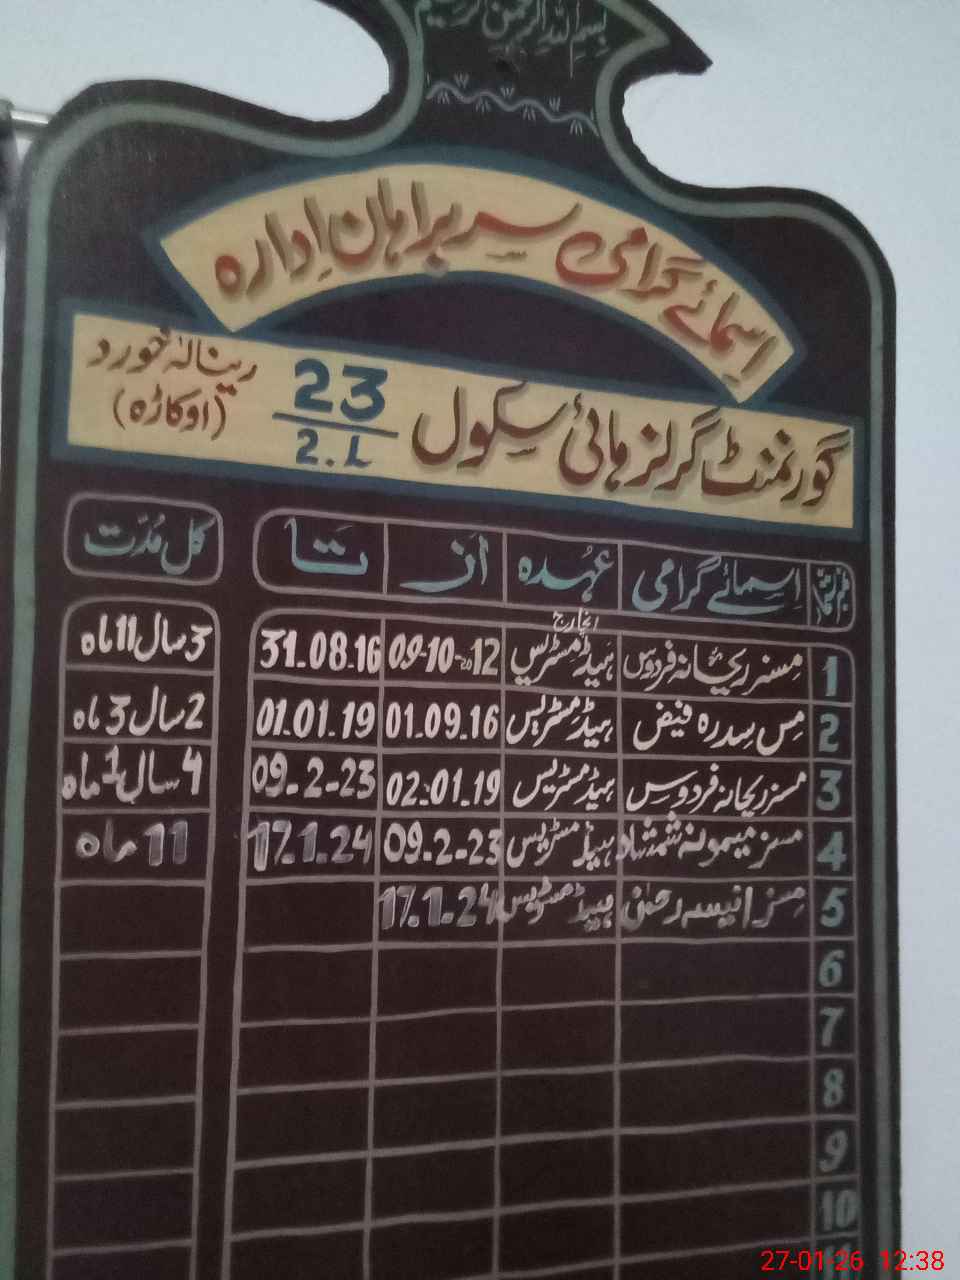 بسم اللہ الرحمن الرحیم
اسمائے گرامی سربراہان ادارہ
گورنمنٹ گرلز ہائی سکول 23/2.L رینالہ خورد (اوکاڑہ)
نمبر شمار اسمائے گرامی عہدہ از تا کل مدت
1 مسز ریحانہ فردوس انچارج ہیڈ مسٹریس 09-10-2012 31.08.16 3 سال 11 ماہ
2 مس سدرہ فیض ہیڈ مسٹریس 01.09.16 01.01.19 2 سال 3 ماہ
3 مسز ریحانہ فردوس ہیڈ مسٹریس 02.01.19 09-2-23 4 سال 1 ماہ
4 مسز میمونہ شمشاد ہیڈ مسٹریس 09-2-23 17.1.24 11 ماہ
5 مسز انیسہ رحمٰن ہیڈ مسٹریس 17.1.24
6
7
8
9
10
27-01-26 12:38